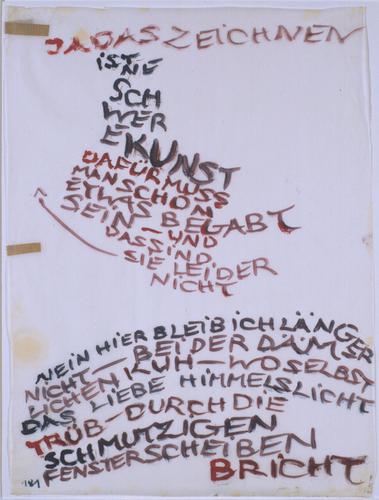 JA DAS ZEICHNEN
iST NE
SCH
WER
E KUNST
DAFÜR MUSS
MAN SCHON
ETWAS BEGABT
SEIN - UND
DAS SIND
SIE LEIDER
NICHT
NEIN HIER BLEIB ICH LÄNGER
NICHT - BEI DER DÄM ER
LICHEN KUH - WOSELBST
DAS LIEBE HIMMELSLICHT
TRÜB - DURCH DIE
SCHMUTZIGEN
FENSTERSCHEIBEN
BRICHT